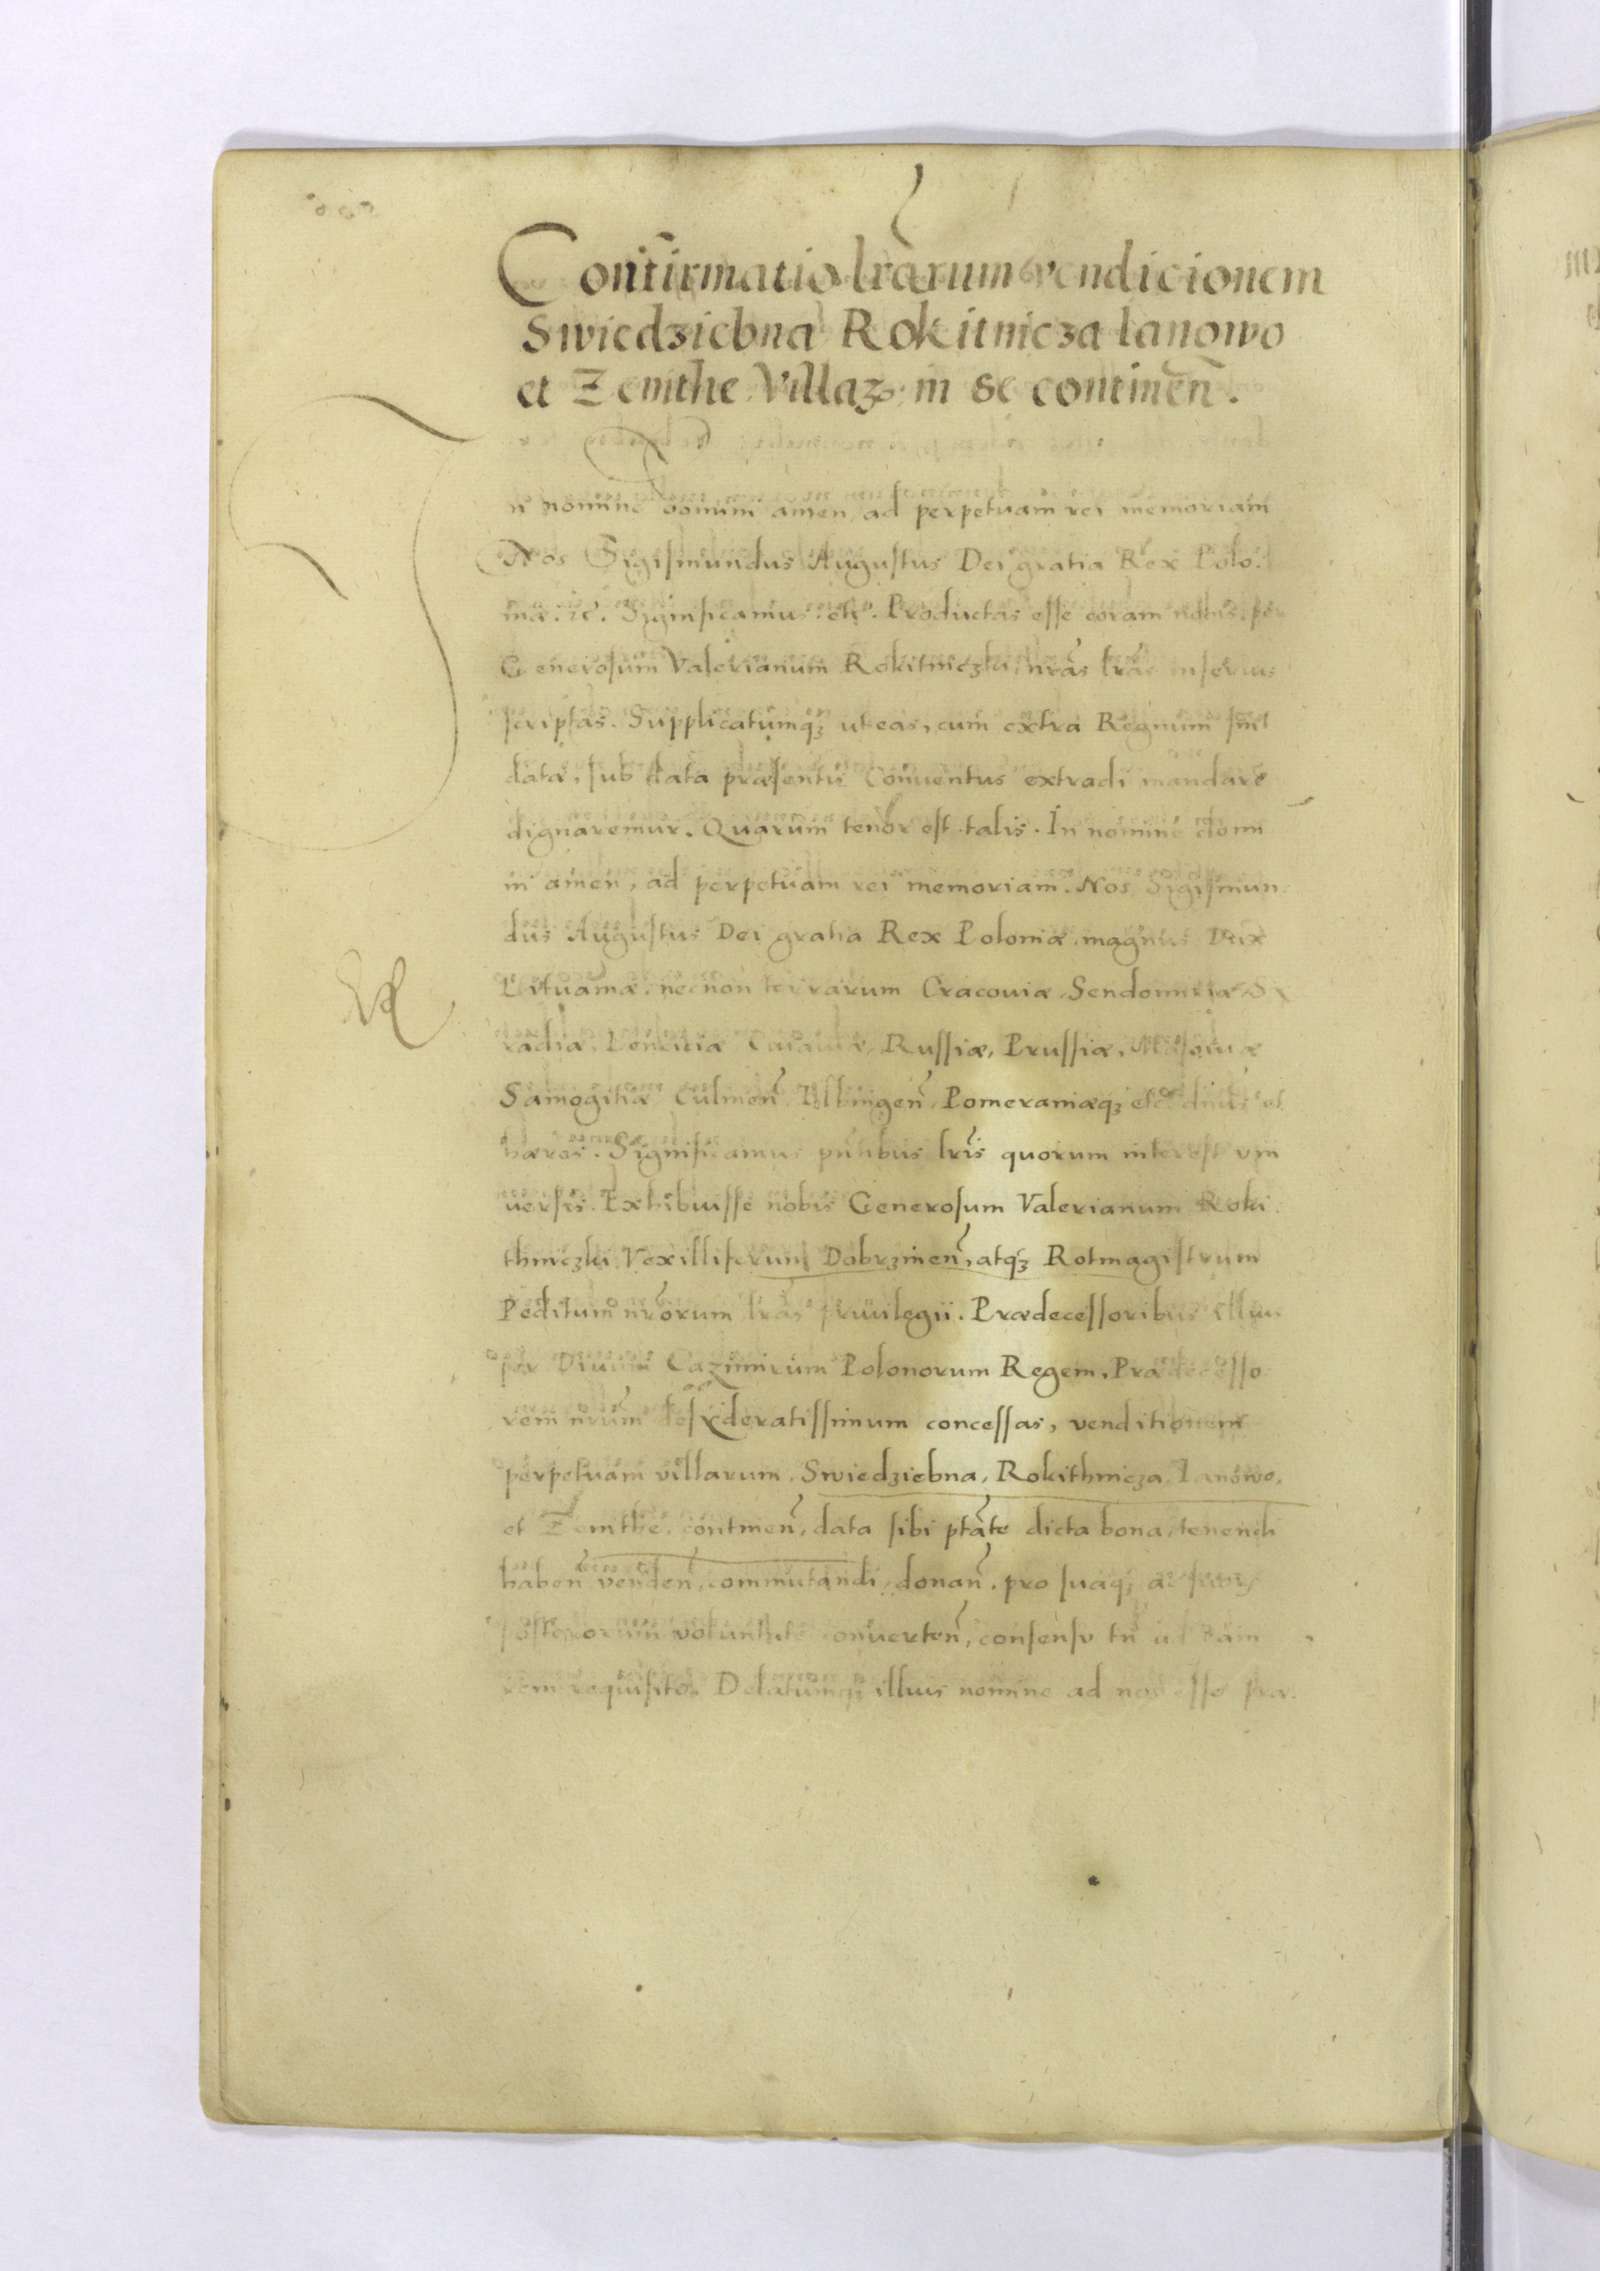 Confirmatio lrãrum vendicionem
Swiedziebna Rokitnicza Ianowo
et Zemthe Villaꝝ in se continen̄.
n nomine domini amen ad perpetuam rei memoriam
Nos Sigismundus Augustus Dei gratia Rex Polo
niæ. ꝛc̃. Significamus. etc. Productas esse coram nobis, per
Generosum Valerianum Rokitniczki, nrãs lrãs inferius
scriptas. Supplicatumqꝫ ut eas, cum extra Regnum sint
datæ, sub data præsentis Conuentus extradi mandare
dignaremur. Quarum tenor est talis. In nomine domi
ni amen, ad perpetuam rei memoriam. Nos Sigismun
dus Augustus Dei gratia Rex Poloniæ magnus Dux
Lituaniæ. necnon terrarum Cracouiæ, Sendomiriæ, Si
radiæ, Lenciciæ Cuiauiæ, Russiæ, Prussiæ, Masouiæ
Samogitiæ Culmen̄ Elbingen̄ Pomeraniæqꝫ etc. dn̄us et
hæres. Significamus pn̄tibus lrĩs quorum interest vni
uersis. Exhibuisse nobis Generosum Valerianum Roki
thniczki Vexilliferum Dobrzinen̄, atqꝫ Rotmagistrum
Peditum nrõrum lrãs priuilegii. Prædecessoribus illius
per Diuum Cazimirum Polonorum Regem, Prædecesso
rem nrũm desyderatissimum concessas, venditionem
perpetuam villarum, Swiedziebna, Rokithnicza Ianowo,
et Zemthe, continen̄, data sibi ptãte dicta bona, tenendi
haben̄ venden̄, commutandi, donan̄. pro suaqꝫ ac suorꝫ
posterorum voluntate conuerten̄, consensu tn̄ ad eam
rem requisito. Delatumqꝫ illius nomine ad nos esse præ